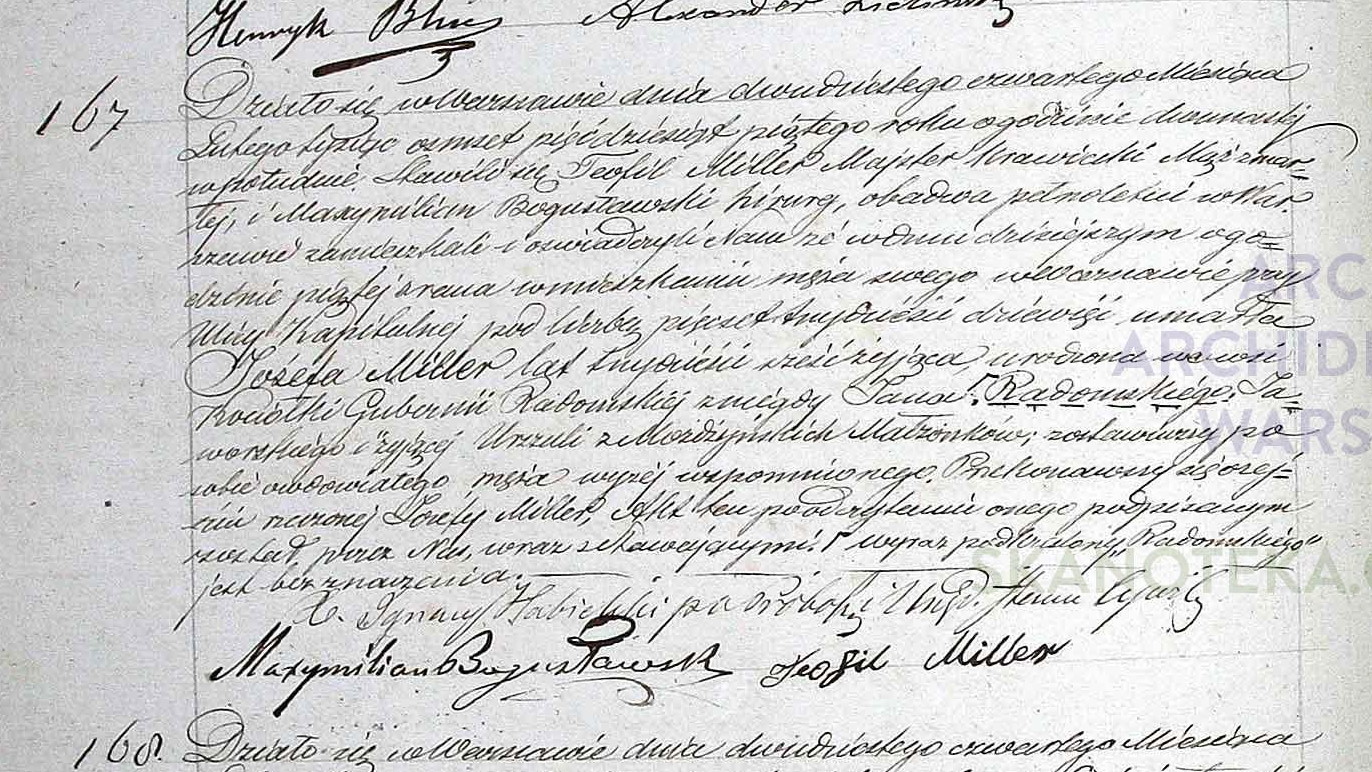 Henryk Alexander
167
Działo się w Warszawie dnia dwudziestego czwartego Miesiąca
Lutego tysiąc osmset pięćdziesiąt piątego roku o godzinie dwunastej
w południe. Stawili się Teofil Miller Majster Krawiecki Mąż zmar=
łej, i Maxymilian Bogusławski hirurg, obadwa pełnoletni w War=
szawie zamieszkali i oświadczyli Nam że w dniu dzisiejszym o go=
dzinie piątej z rana w mieszkaniu męża swego w Warszawie przy
Ulicy Kapitulnej pod liczbą pięćset trzydzieści dziewięć umarła
Józefa Miller lat trzydzieści sześć żyjąca, urodzona we wsi
Gubernii Radomskiej z niegdy Jana Radomskiego. Ja=
worskiego i żyjącej Urszuli z Małżonków; zostawiwszy po
sobie owdowiałego męża wyżej wspomnionego. Przekonawszy się o zej=
ściu rzeczonej Józefy Miller, Akt ten po odczytaniu onego podpisanym
został przez Nas, wraz z stawającymi. wyraz podkreślony „Radomskiego"
jest bez znaczenia.
X. Ignacy
Maxymilian Bogusławski Teofil Miller
168. Działo się w Warszawie dnia dwudziestego czwartego Miesiąca
ARC
ARCHIDI
WARS
SKANOTERA.